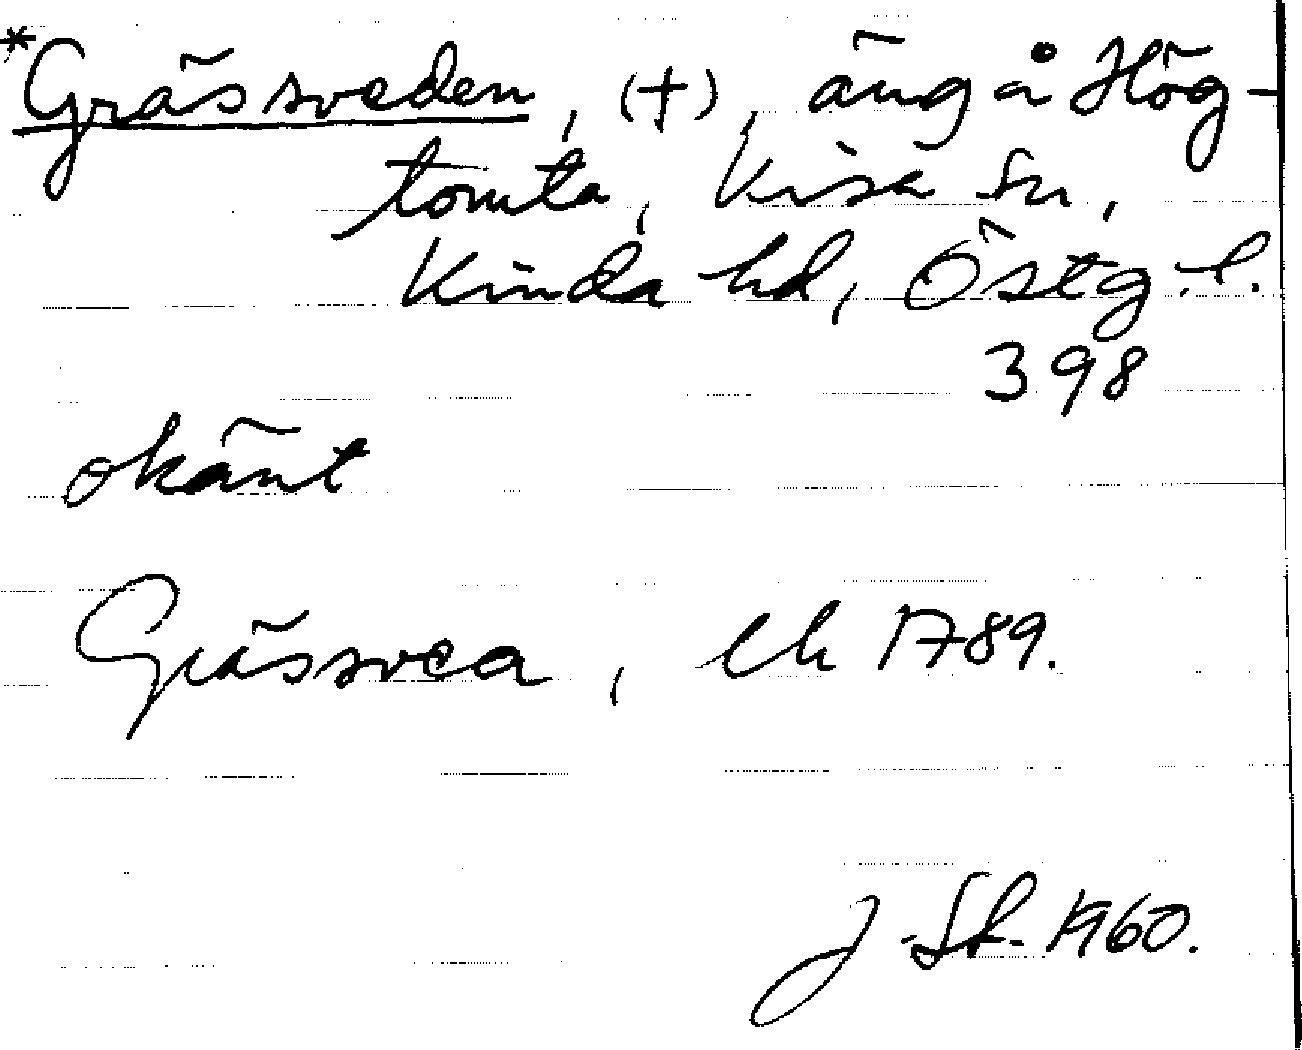 *Grässveden, (+), äng å Hög-
tomta, Kisa sn,
Kinda hd, Östg. l.
398
okänt
Grässvea, ek 1789.
J. Sk. 1960.